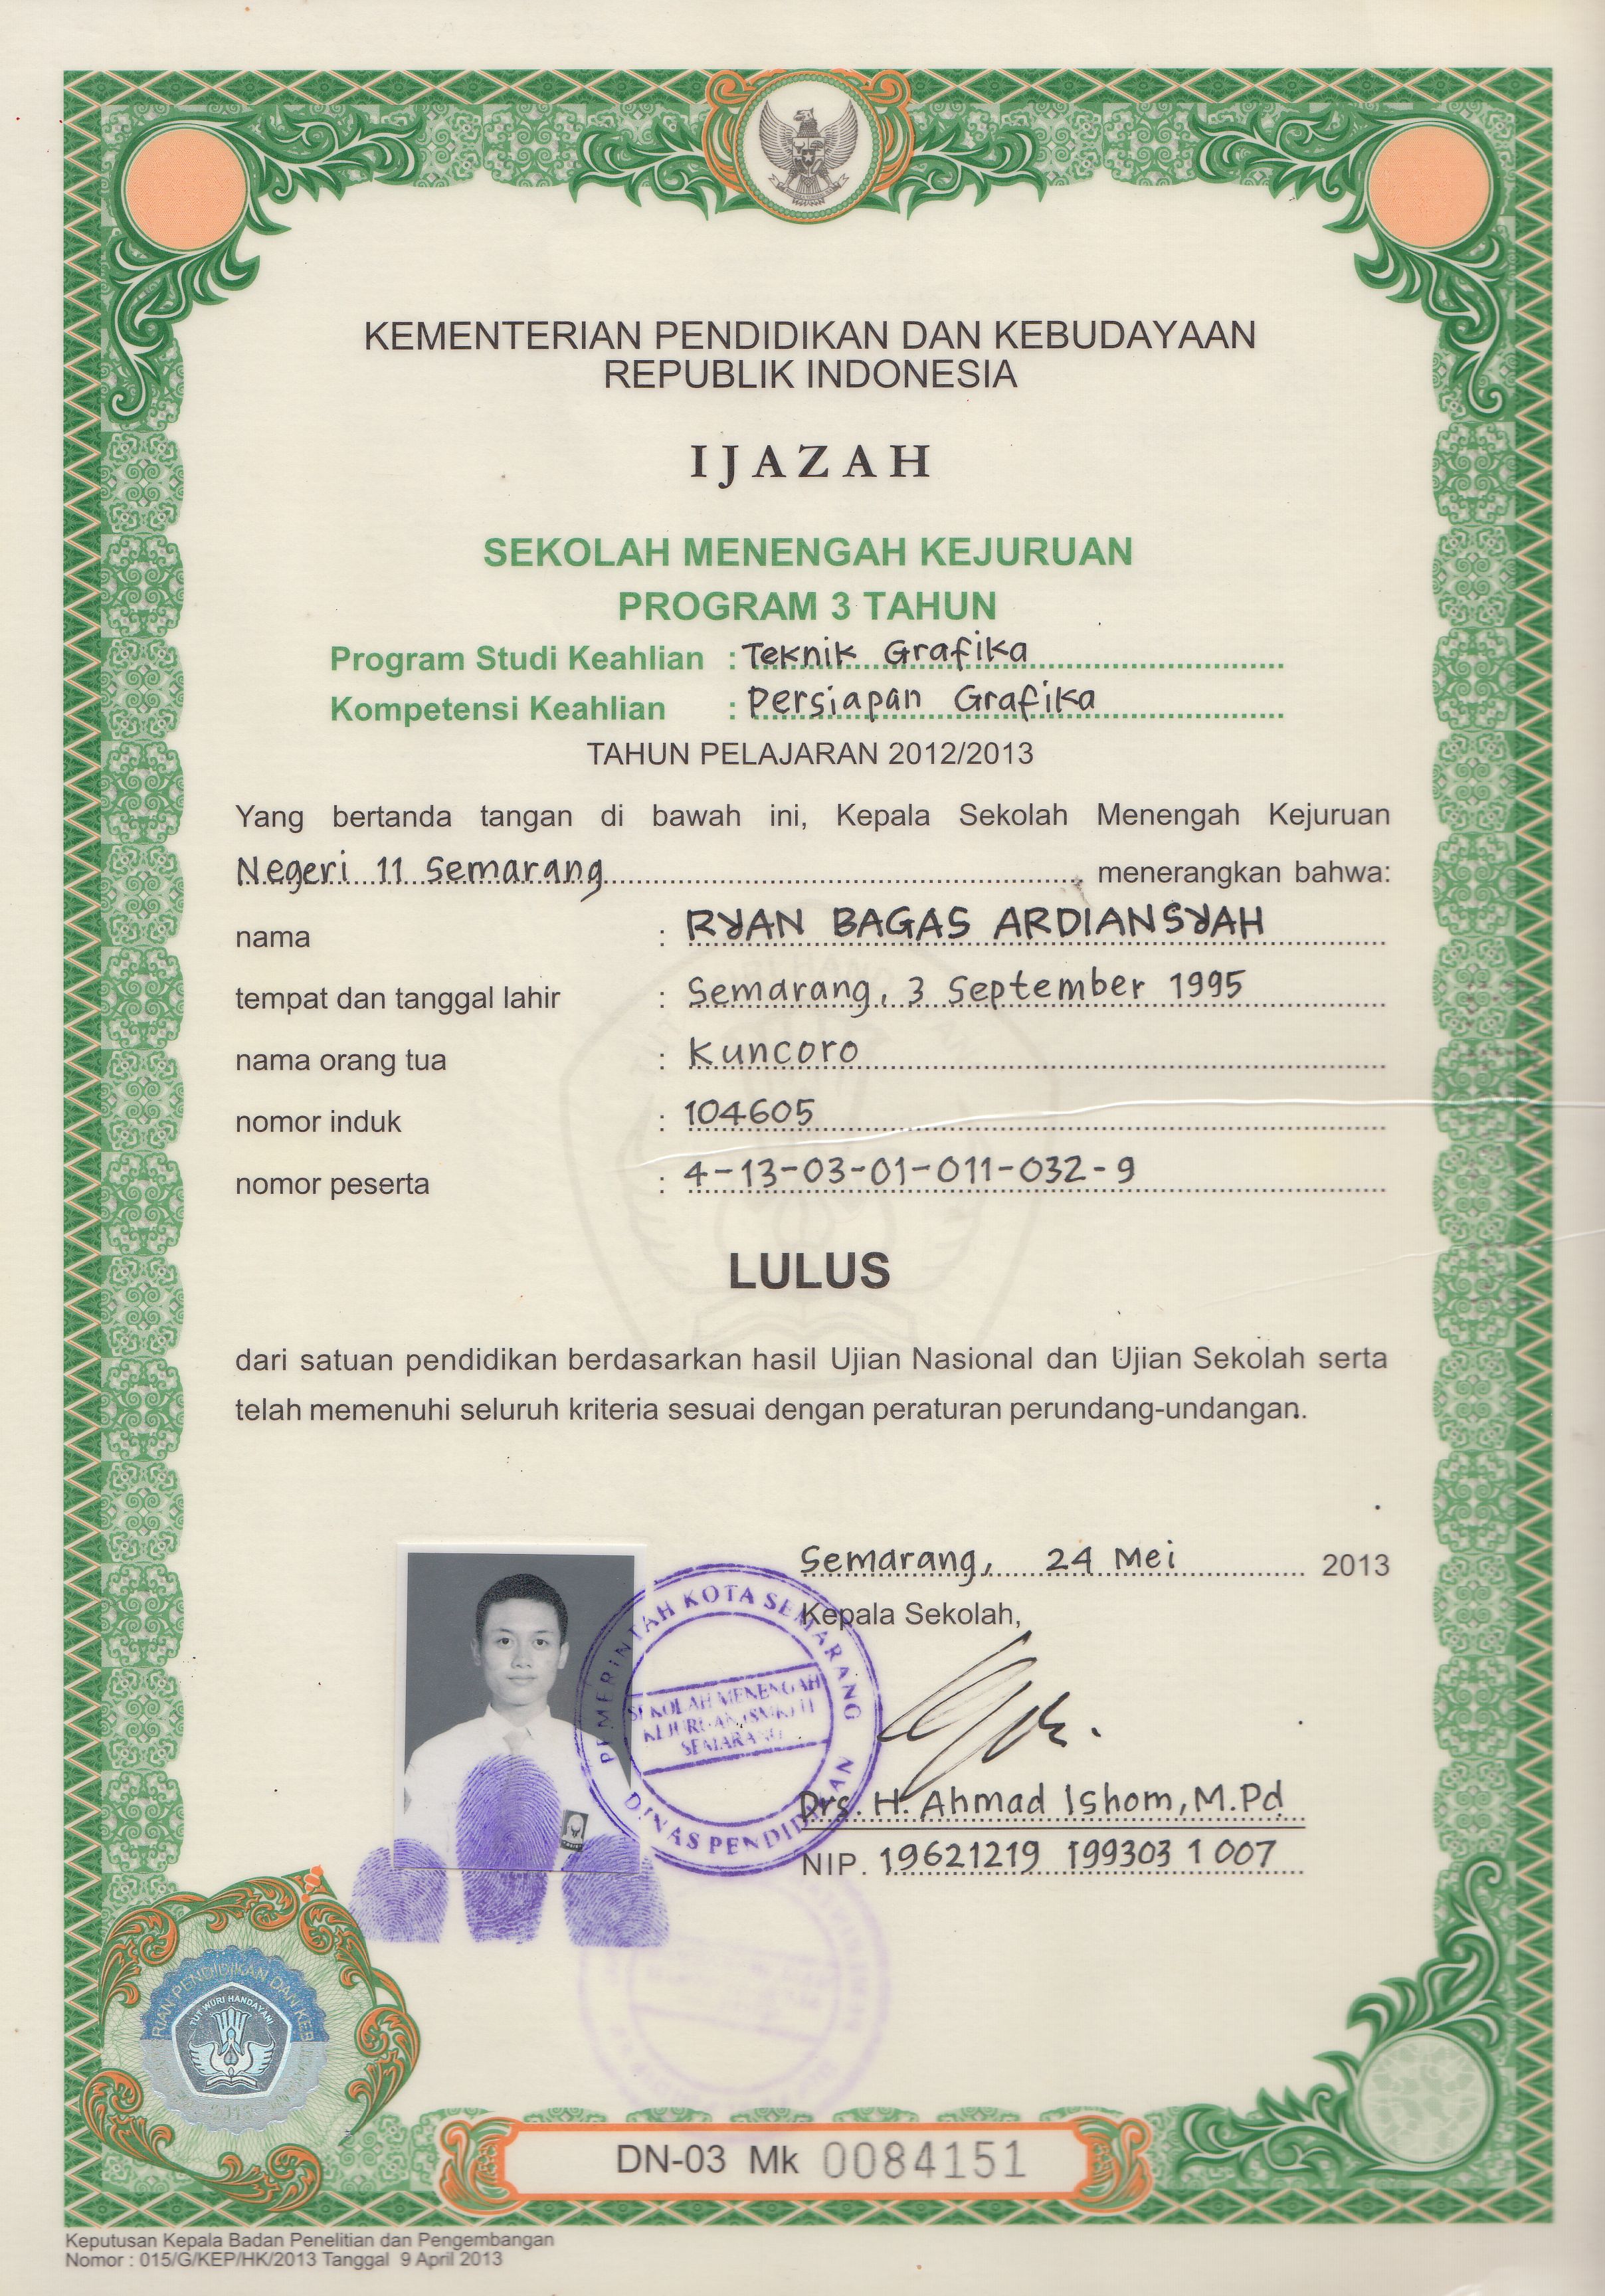 KEMENTERIAN PENDIDIKAN DAN KEBUDAYAAN
REPUBLIK INDONESIA
IJAZAH
SEKOLAH MENENGAH KEJURUAN
PROGRAM 3 TAHUN
Program Studi Keahlian : Teknik Grafika
Kompetensi Keahlian : Persiapan Grafika
TAHUN PELAJARAN 2012/2013
Yang bertanda tangan di bawah ini, Kepala Sekolah Menengah Kejuruan
Negeri 11 Semarang, menerangkan bahwa:
nama : RYAN BAGAS ARDIANSYAH
tempat dan tanggal lahir : Semarang, 3 September 1995
nama orang tua : Kuncoro
nomor induk : 104605
nomor peserta : 4-13-03-01-011-032-9
LULUS
dari satuan pendidikan berdasarkan hasil Ujian Nasional dan Ujian Sekolah serta
telah memenuhi seluruh kriteria sesuai dengan peraturan perundang-undangan.
Semarang, 24 Mei 2013
Kepala Sekolah,
PEMERINTAH KOTA SEMARANG
SEKOLAH MENENGAH
KEJURUAN (SMK) 11
SEMARANG
DINAS PENDIDIKAN
Drs. H. Ahmad Ishom, M.Pd
NIP. 19621219 199303 1 007
RIAN PENDIDIKAN DAN KEB
TUT WURI HANDAYANI
DN-03 Mk 0084151
Keputusan Kepala Badan Penelitian dan Pengembangan
Nomor : 015/G/KEP/HK/2013 Tanggal 9 April 2013